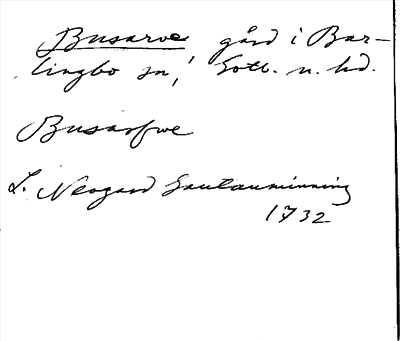 Busarve gård i Bar-
lingbo sn, Gotl. n. hd.
Busarfve
L. Neogard Gautauminning
1732